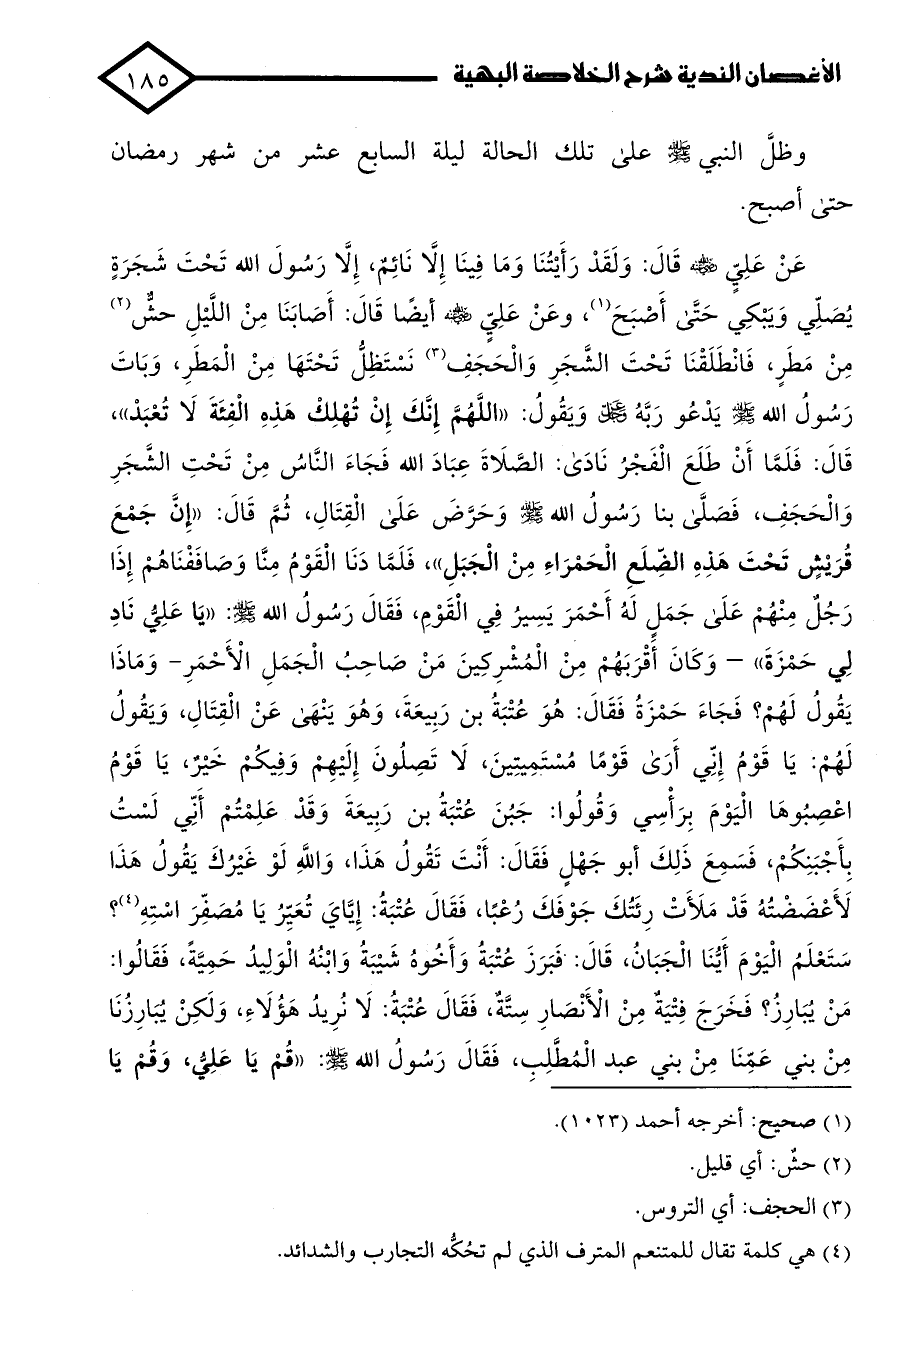 الأغصان الندية شرح الخلاصة البهية
١٨٥
وظلَّ النبي ﷺ علىٰ تلك الحالة ليلة السابع عشر من شهر رمضان
حتىٰ أصبح.
عَنْ عَلِيٍّ رضي الله عنه قَالَ: وَلَقَدْ رَأَيْتُنَا وَمَا فِينَا إِلَّا نَائِمٌ، إِلَّا رَسُولَ الله تَحْتَ شَجَرَةٍ
يُصَلِّي وَيَبْكِي حَتَّىٰ أَصْبَحَ(١)، وعَنْ عَلِيٍّ رضي الله عنه أيضًا قَالَ: أَصَابَنَا مِنْ اللَّيْلِ حشٌّ(٢)
مِنْ مَطَرٍ، فَانْطَلَقْنَا تَحْتَ الشَّجَرِ وَالْحَجَفِ(٣) نَسْتَظِلُّ تَحْتَهَا مِنْ الْمَطَرِ، وَبَاتَ
رَسُولُ الله ﷺ يَدْعُو رَبَّهُ عز وجل وَيَقُولُ: «اللَّهُمَّ إِنَّكَ إِنْ تُهْلِكْ هَذِهِ الْفِئَةَ لَا تُعْبَدْ»،
قَالَ: فَلَمَّا أَنْ طَلَعَ الْفَجْرُ نَادَىٰ: الصَّلَاةَ عِبَادَ الله فَجَاءَ النَّاسُ مِنْ تَحْتِ الشَّجَرِ
وَالْحَجَفِ، فَصَلَّىٰ بنا رَسُولُ الله ﷺ وَحَرَّضَ عَلَى الْقِتَالِ، ثُمَّ قَالَ: «إِنَّ جَمْعَ
قُرَيْشٍ تَحْتَ هَذِهِ الضِّلَعِ الْحَمْرَاءِ مِنْ الْجَبَلِ»، فَلَمَّا دَنَا الْقَوْمُ مِنَّا وَصَافَفْنَاهُمْ إِذَا
رَجُلٌ مِنْهُمْ عَلَىٰ جَمَلٍ لَهُ أَحْمَرَ يَسِيرُ فِي الْقَوْمِ، فَقَالَ رَسُولُ الله ﷺ: «يَا عَلِيُّ نَادِ
لِي حَمْزَةَ» – وَكَانَ أَقْرَبَهُمْ مِنْ الْمُشْرِكِينَ مَنْ صَاحِبُ الْجَمَلِ الْأَحْمَرِ- وَمَاذَا
يَقُولُ لَهُمْ؟ فَجَاءَ حَمْزَةُ فَقَالَ: هُوَ عُتْبَةُ بن رَبِيعَةَ، وَهُوَ يَنْهَىٰ عَنْ الْقِتَالِ، وَيَقُولُ
لَهُمْ: يَا قَوْمُ إِنِّي أَرَىٰ قَوْمًا مُسْتَمِيتِينَ، لَا تَصِلُونَ إِلَيْهِمْ وَفِيكُمْ خَيْرٌ، يَا قَوْمُ
اعْصِبُوهَا الْيَوْمَ بِرَأْسِي وَقُولُوا: جَبُنَ عُتْبَةُ بن رَبِيعَةَ وَقَدْ عَلِمْتُمْ أَنِّي لَسْتُ
بِأَجْبَنِكُمْ، فَسَمِعَ ذَلِكَ أبو جَهْلٍ فَقَالَ: أَنْتَ تَقُولُ هَذَا، وَاللَّهِ لَوْ غَيْرُكَ يَقُولُ هَذَا
لَأَعْضَضْتُهُ قَدْ مَلَأَتْ رِئَتُكَ جَوْفَكَ رُعْبًا، فَقَالَ عُتْبَةُ: إِيَّايَ تُعَيِّرُ يَا مُصَفِّرَ اسْتِهِ(٤)؟
سَتَعْلَمُ الْيَوْمَ أَيُّنَا الْجَبَانُ، قَالَ: فَبَرَزَ عُتْبَةُ وَأَخُوهُ شَيْبَةُ وَابْنُهُ الْوَلِيدُ حَمِيَّةً، فَقَالُوا:
مَنْ يُبَارِزُ؟ فَخَرَجَ فِتْيَةٌ مِنْ الْأَنْصَارِ سِتَّةٌ، فَقَالَ عُتْبَةُ: لَا نُرِيدُ هَؤُلَاءِ، وَلَكِنْ يُبَارِزُنَا
مِنْ بني عَمِّنَا مِنْ بني عبد الْمُطَّلِبِ، فَقَالَ رَسُولُ الله ﷺ: «قُمْ يَا عَلِيُّ، وَقُمْ يَا
(١) صحيح: أخرجه أحمد (١٠٢٣).
(٢) حشٌ: أي قليل.
(٣) الحجف: أي التروس.
(٤) هي كلمة تقال للمتنعم المترف الذي لم تحُكُّه التجارب والشدائد.